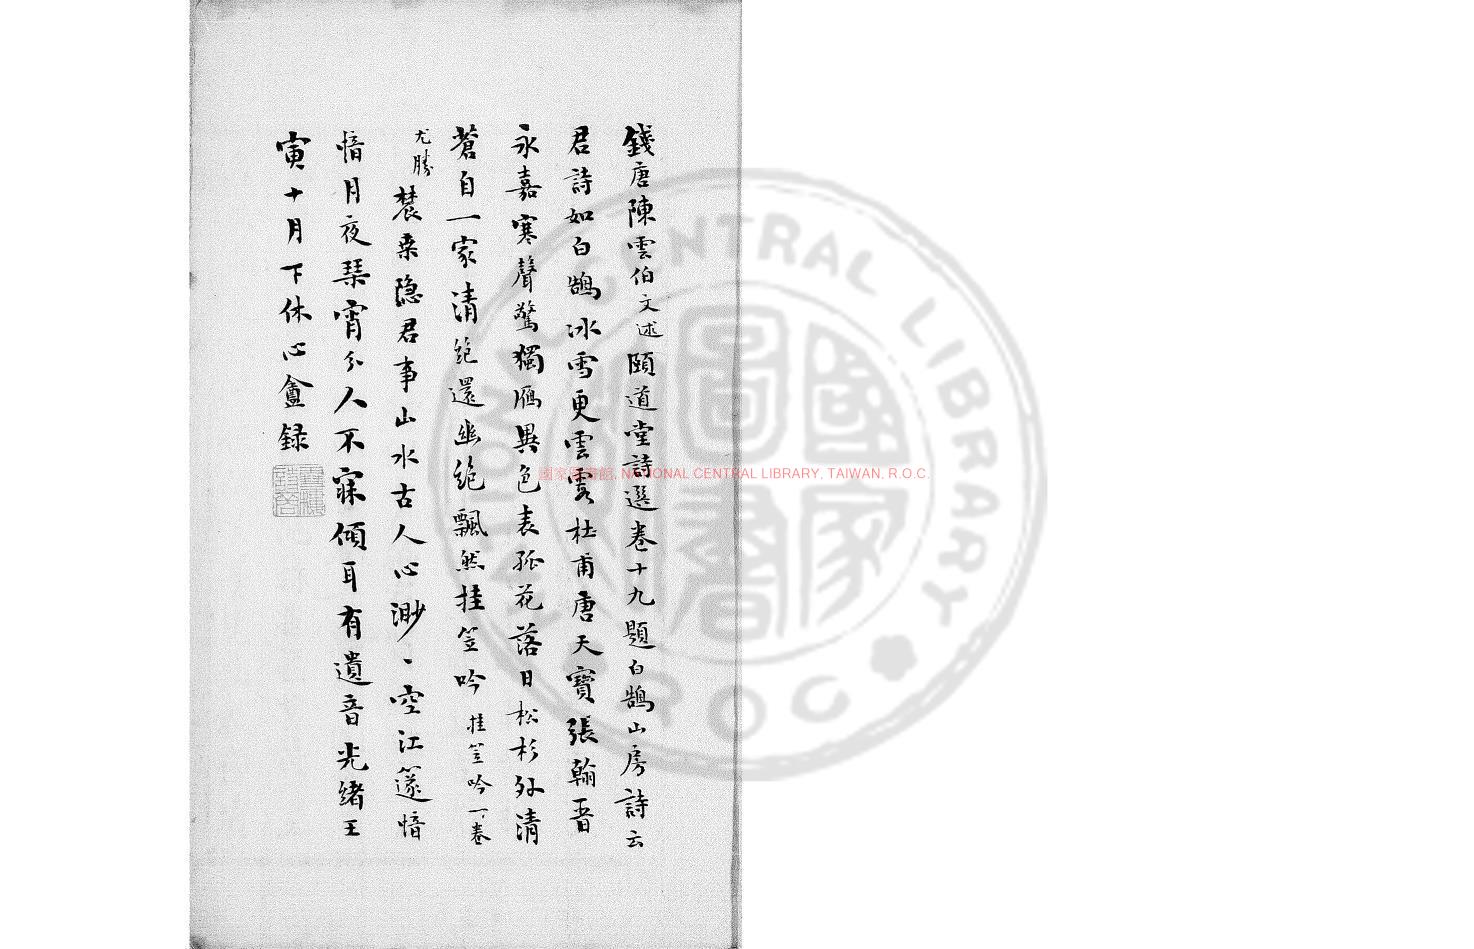 錢唐陳雲伯文述頤道堂詩選卷十九題白鵠山房詩云
君詩如白鵠冰雪更雲霄杜甫唐天寶張翰晉
永嘉寒聲驚獨鴈異色表孤花落日松杉外清
蒼自一家清絶還幽絶飄然挂笠吟挂笠吟一卷
尤勝農桑隐君事山水古人心渺、空江篴愔
愔月夜琹宵分人不寐傾耳有遺音光緒壬
寅十月下休心盦録
國家圖書館, NATIONAL CENTRAL LIBRARY, TAIWAN, R.O.C.
NATIONAL CENTRAL LIBRARY
ROC
國家圖書館